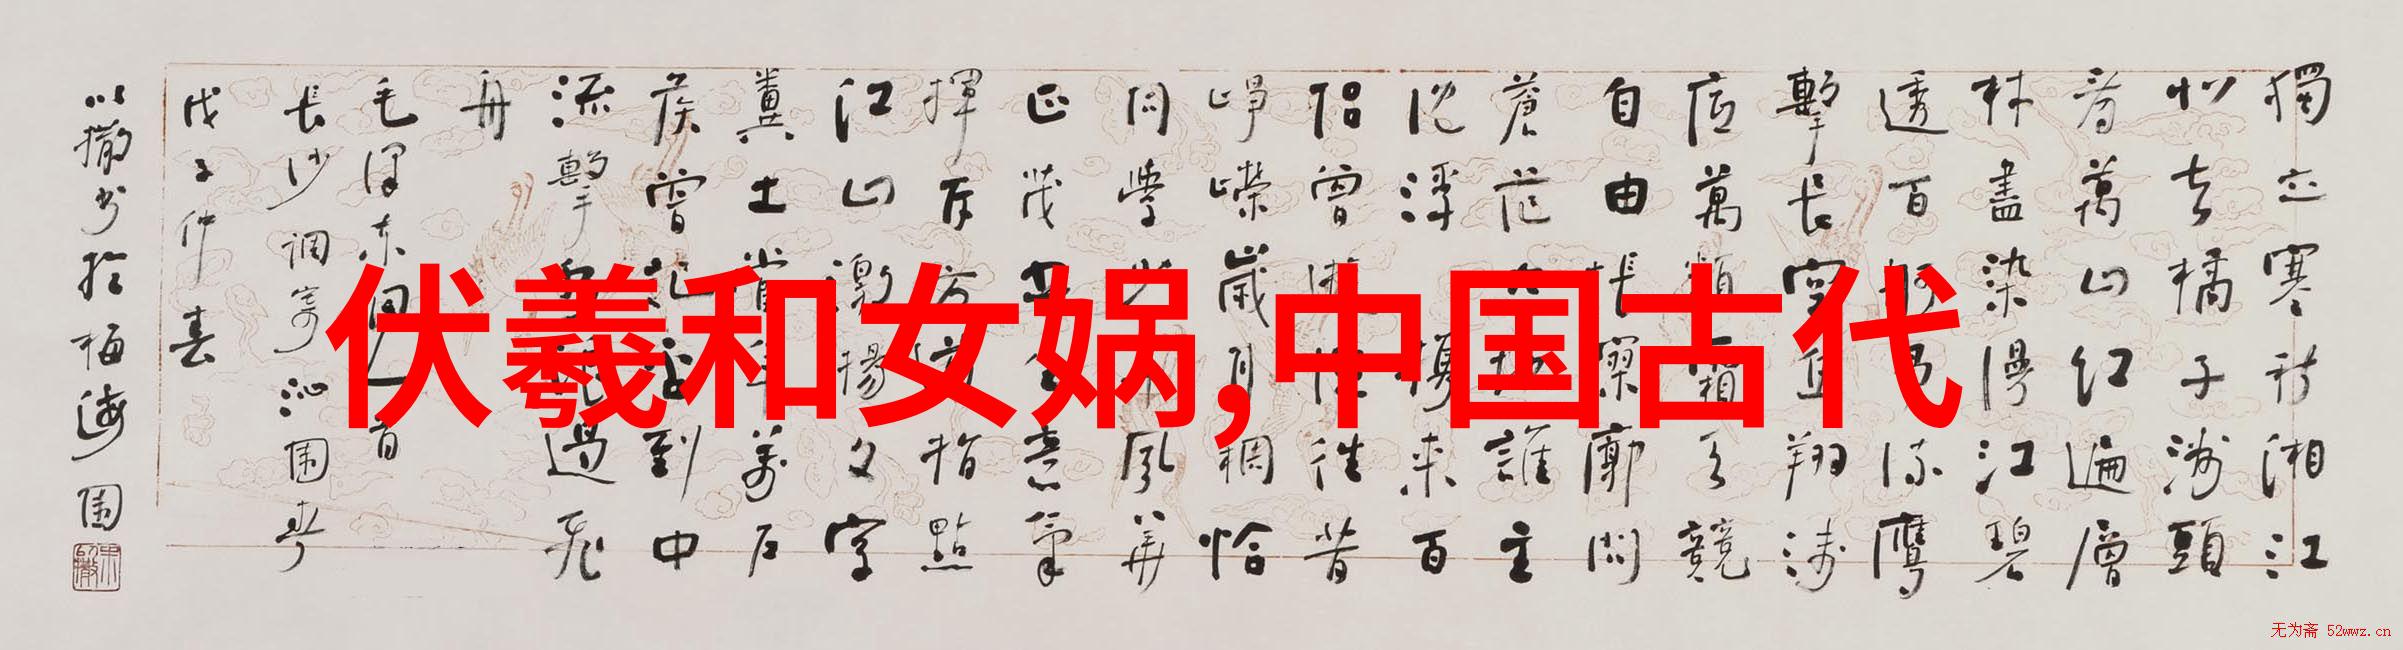 獨立寒秋湘江
北去橘子洲頭
看萬山红遍層
林盡染漫江碧
透百舸争流鹰
擊長空魚翔淺
底萬類霜天競
自由悵寥廓問
蒼茫大地誰主
沈浮携来百
侣曾遊憶往昔
崢嶸歲月稠恰
同學少年風華
正茂書生意氣
揮斥方遒指點
江山激揚文字
糞土當年萬户
侯曾記否到中
流擊水浪遏飛
舟
毛澤東
長沙調寄沁園春
戊子仲春
撒书於梅海園
伏羲和女娲,中国古代
无为斋 52wwz.cn